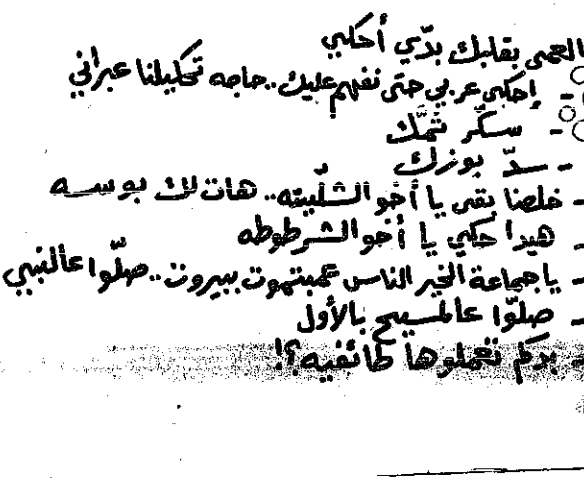 العمى بقلبك بدّي أحكي
- إحكي عربي حتى نفهم عليك.. حاجه تحكيلنا عبراني
- سكّر تمّك
- سدّ بوزك
- خلصنا بقى يا أخو الشلّيته.. هات لك بوسه
- هيدا حكي يا أخو الشرطوطه
- يا جماعة الخير الناس عمبتموت ببيروت.. صلّوا عالنبي
- صلّوا عالمسيح بالأول
- بدكم تعملوها طائفيه؟!